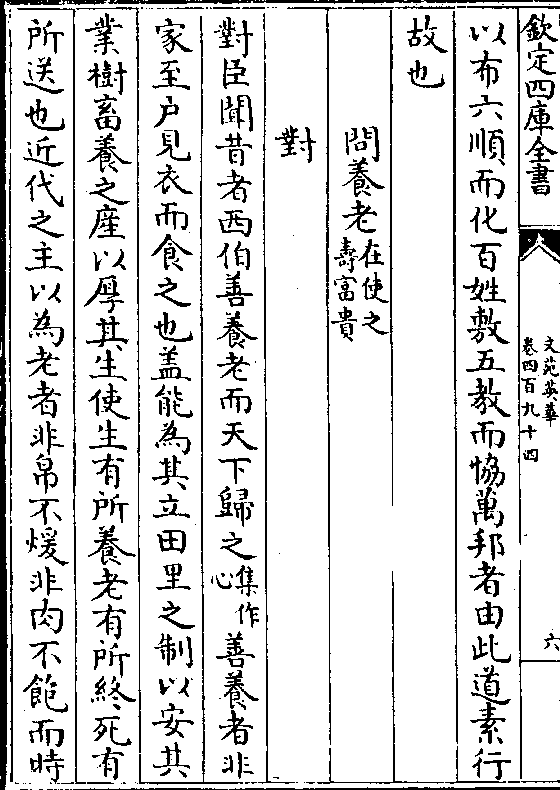 欽定四庫全書
文苑英華
卷四百九十四
六
以布六順而化百姓敷五教而恊萬邦者由此道素行
故也
問養老在使之壽富貴
對
對臣聞昔者西伯善養老而天下歸之集作心善養者非
家至户見衣而食之也盖能為其立田里之制以安其
業樹畜養之産以厚其生使生有所養老有所終死有
所送也近代之主以為老者非帛不煖非肉不飽而時